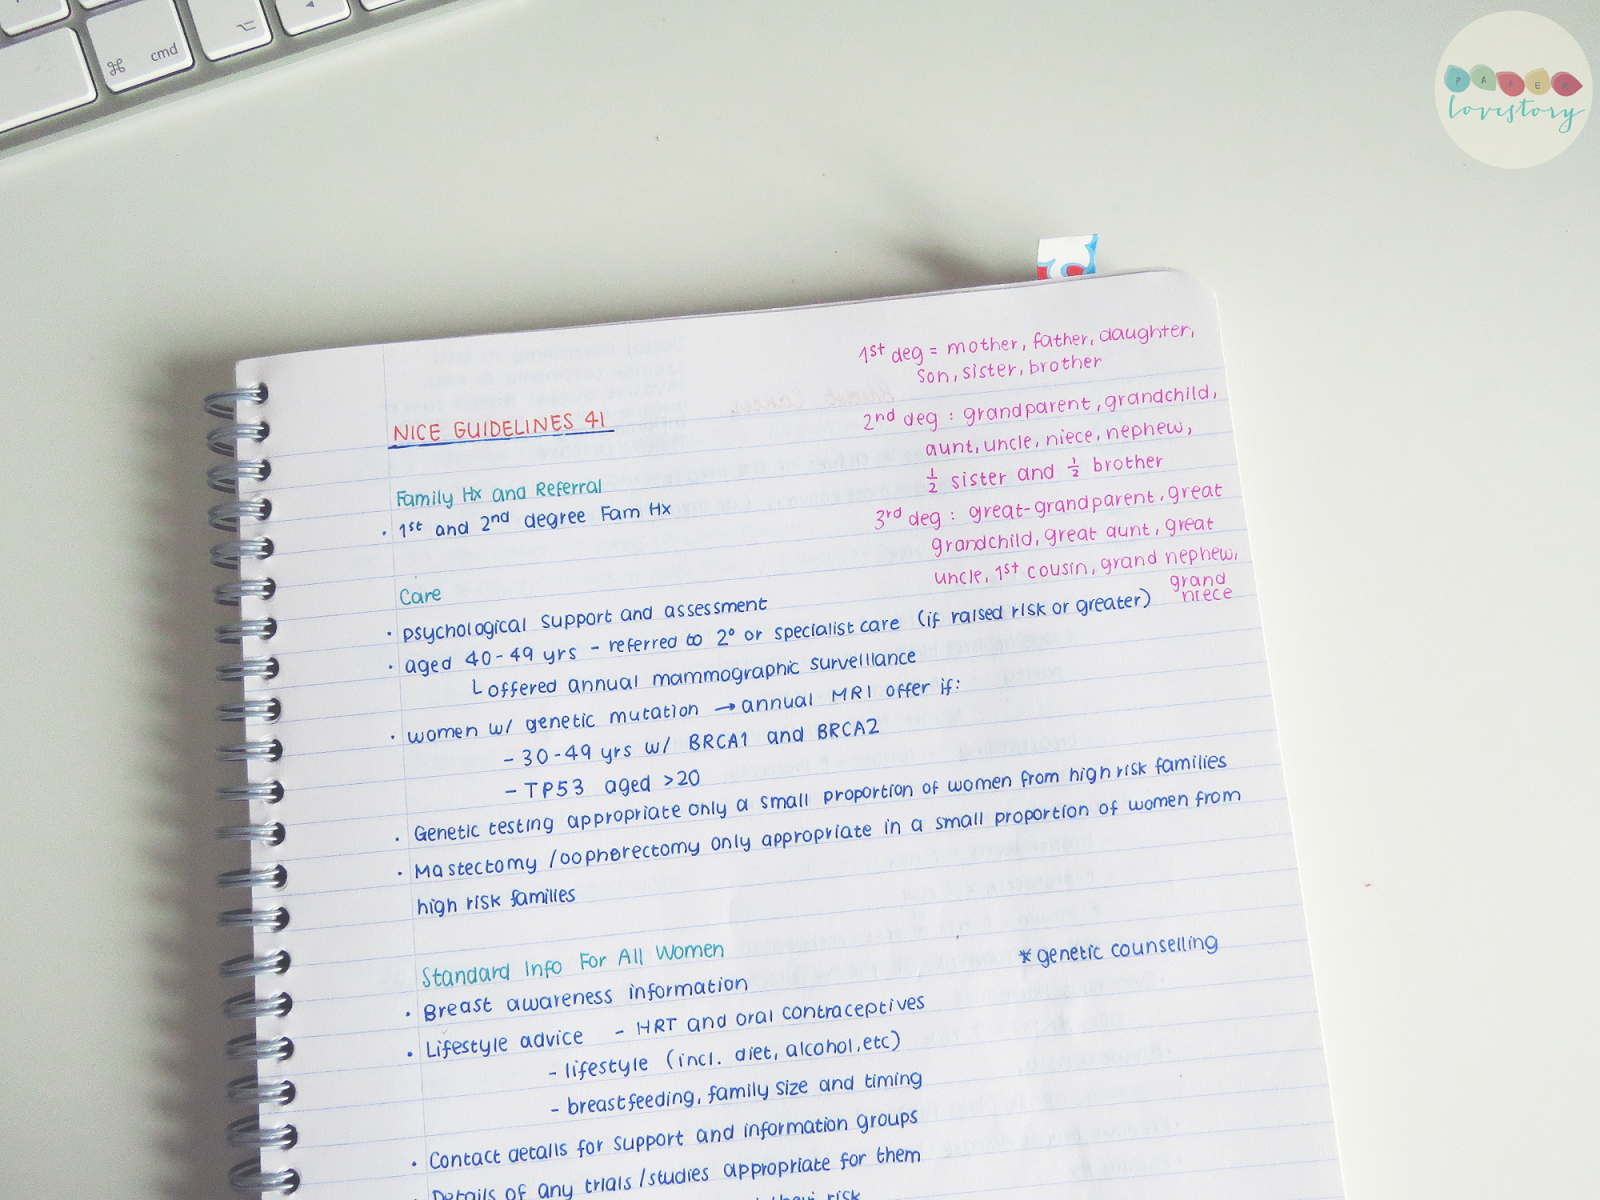 ⌘ cmd
⌥
PAPER
lovestory
1st deg = mother, father, daughter,
son, sister, brother
2nd deg : grandparent, grandchild,
aunt, uncle, niece, nephew,
½ sister and ½ brother
3rd deg : great-grandparent, great
grandchild, great aunt, great
uncle, 1st cousin, grand nephew,
grand
niece
NICE GUIDELINES 41
Family Hx and Referral
· 1st and 2nd degree Fam Hx
Care
· psychological support and assessment
· aged 40-49 yrs - referred to 2° or specialist care (if raised risk or greater)
└ offered annual mammographic surveillance
· women w/ genetic mutation → annual MRI offer if:
- 30-49 yrs w/ BRCA1 and BRCA2
- TP53 aged >20
· Genetic testing appropriate only a small proportion of women from high risk families
· Mastectomy /oophorectomy only appropriate in a small proportion of women from
high risk families
Standard Info For All Women
* genetic counselling
· Breast awareness information
· Lifestyle advice - HRT and oral contraceptives
- lifestyle (incl. diet, alcohol, etc)
- breastfeeding, family size and timing
· Contact details for support and information groups
· Details of any trials /studies appropriate for them
their risk